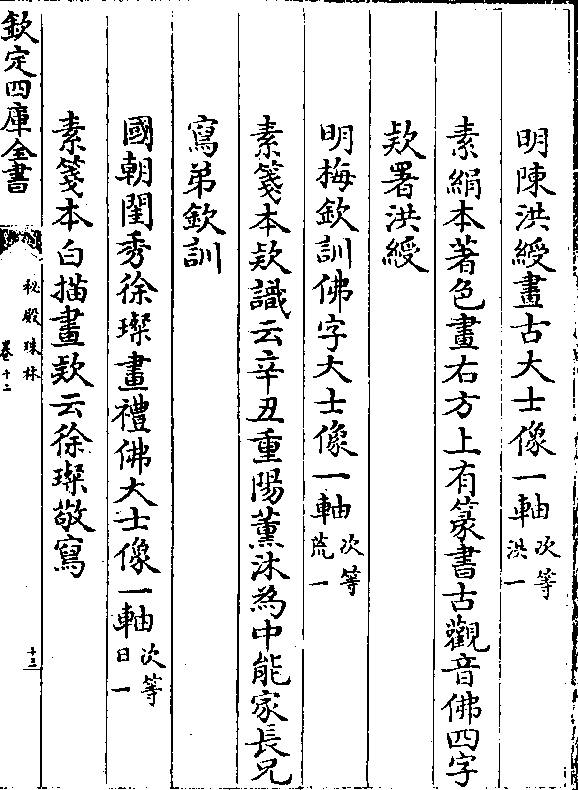 明陳洪綬畫古大士像一軸次等洪一
素絹本著色畫右方上有篆書古觀音佛四字
欵署洪綬
明梅欽訓佛字大士像一軸次等荒一
素箋本欵識云辛丑重陽薰沐為中能家長兄
寫弟欽訓
國朝閨秀徐璨畫禮佛大士像一軸次等日一
素箋本白描畫欵云徐璨敬寫
欽定四庫全書
秘殿珠林
卷十二
十三